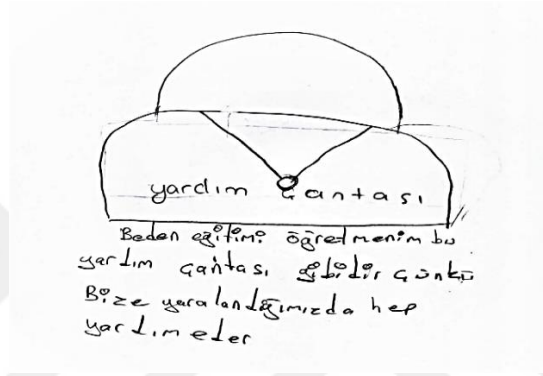 yardım Çantası
Beden eğitimi öğretmenim bu
yardım çantası gibidir çünkü
Bize yaralandığımızda hep
yardım eder